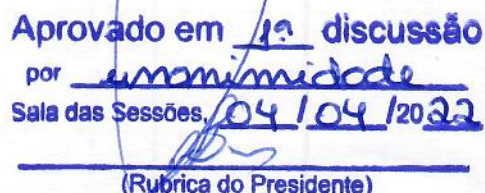 Aprovado em 1ª discussão
por unanimidade
Sala das Sessões, 04 / 04 /2022
(Rubrica do Presidente)